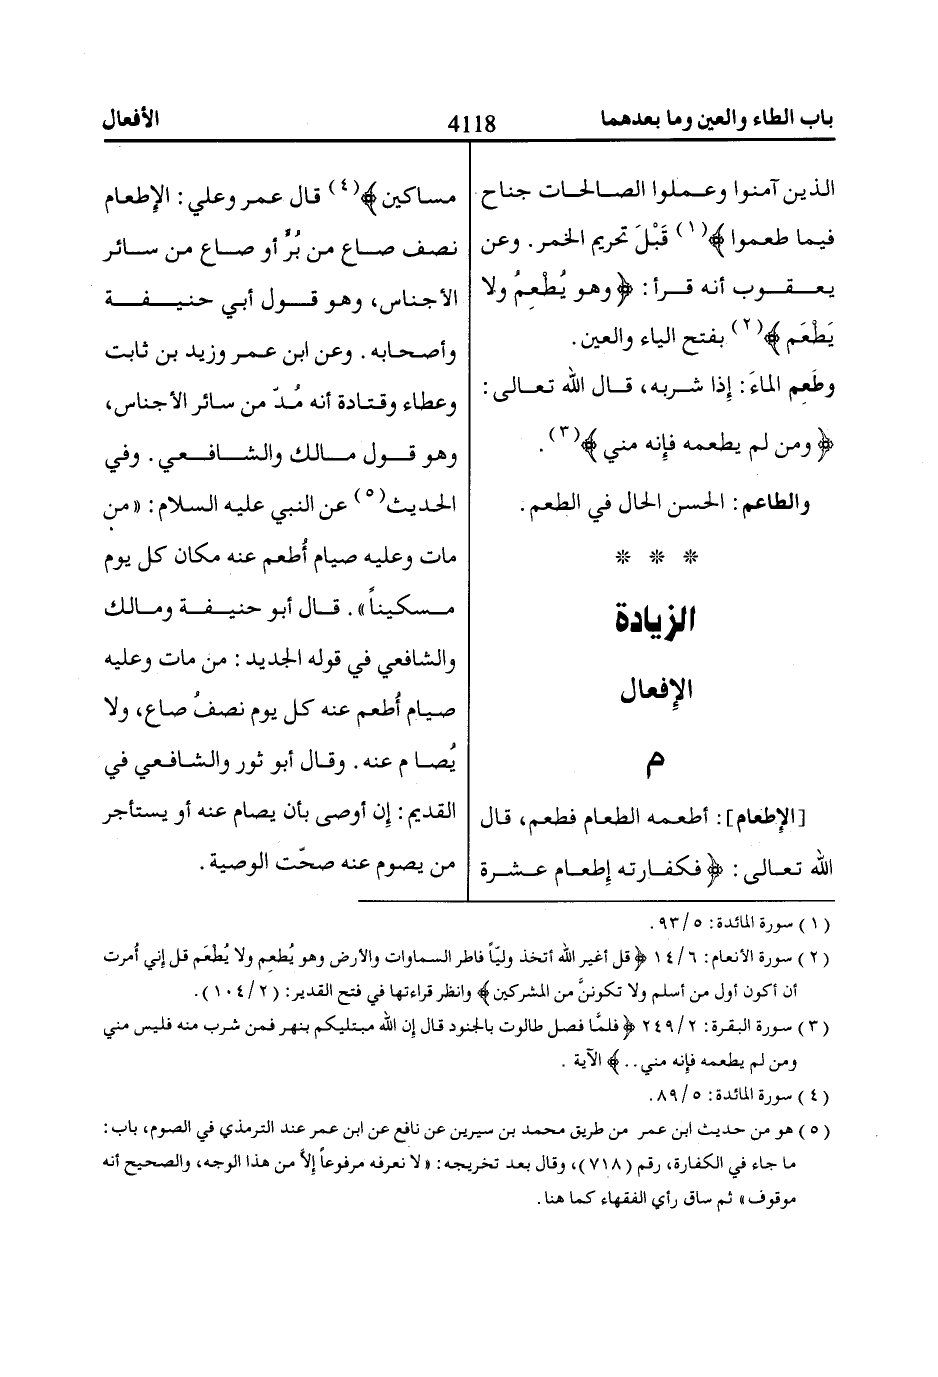 باب الطاء والعين وما بعدهما
4118
الأفعال
الذين آمنوا وعملوا الصالحات جناح
فيما طعموا ﴾(١) قَبْلَ تحريم الخمر. وعن
يعقوب أنه قرأ: ﴿ وهو يُطْعِمُ ولا
يَطْعَم ﴾(٢) بفتح الياء والعين.
وطَعِم الماءَ: إذا شربه، قال الله تعالى:
﴿ ومن لم يطعمه فإنه مني ﴾(٣).
والطاعم: الحسن الحال في الطعم.
* * *
الزيادة
الإفعال
م
[الإطعام]: أطعمه الطعام فطعم، قال
الله تعالى: ﴿ فكفارته إطعام عشرة
مساكين ﴾(٤) قال عمر وعلي: الإطعام
نصف صاع من بُرٌّ أو صاع من سائر
الأجناس، وهو قول أبي حنيفة
وأصحابه. وعن ابن عمر وزيد بن ثابت
وعطاء وقتادة أنه مُدّ من سائر الأجناس،
وهو قول مالك والشافعي. وفي
الحديث(٥) عن النبي عليه السلام: «من
مات وعليه صيام أُطعم عنه مكان كل يوم
مسكيناً». قال أبو حنيفة ومالك
والشافعي في قوله الجديد: من مات وعليه
صيام أُطعم عنه كل يوم نصفُ صاع، ولا
يُصام عنه. وقال أبو ثور والشافعي في
القديم: إن أوصى بأن يصام عنه أو يستأجر
من يصوم عنه صحّت الوصية.
(١) سورة المائدة: ٩٣/٥.
(٢) سورة الأنعام: ١٤/٦ ﴿ قل أغير الله أتخذ وليّاً فاطر السماوات والأرض وهو يُطعِم ولا يُطْعَم قل إني أُمرت
أن أكون أول من أسلم ولا تكوننَّ من المشركين ﴾ وانظر قراءتها في فتح القدير: (١٠٤/٢).
(٣) سورة البقرة: ٢٤٩/٢ ﴿ فلمَّا فصل طالوت بالجنود قال إن الله مبتليكم بنهر فمن شرب منه فليس مني
ومن لم يطعمه فإنه مني.. ﴾ الآية .
(٤) سورة المائدة: ٨٩/٥.
(٥) هو من حديث ابن عمر من طريق محمد بن سيرين عن نافع عن ابن عمر عند الترمذي في الصوم، باب:
ما جاء في الكفارة، رقم (٧١٨)، وقال بعد تخريجه: «لا نعرفه مرفوعاً إلاَّ من هذا الوجه، والصحيح أنه
موقوف» ثم ساق رأي الفقهاء كما هنا.